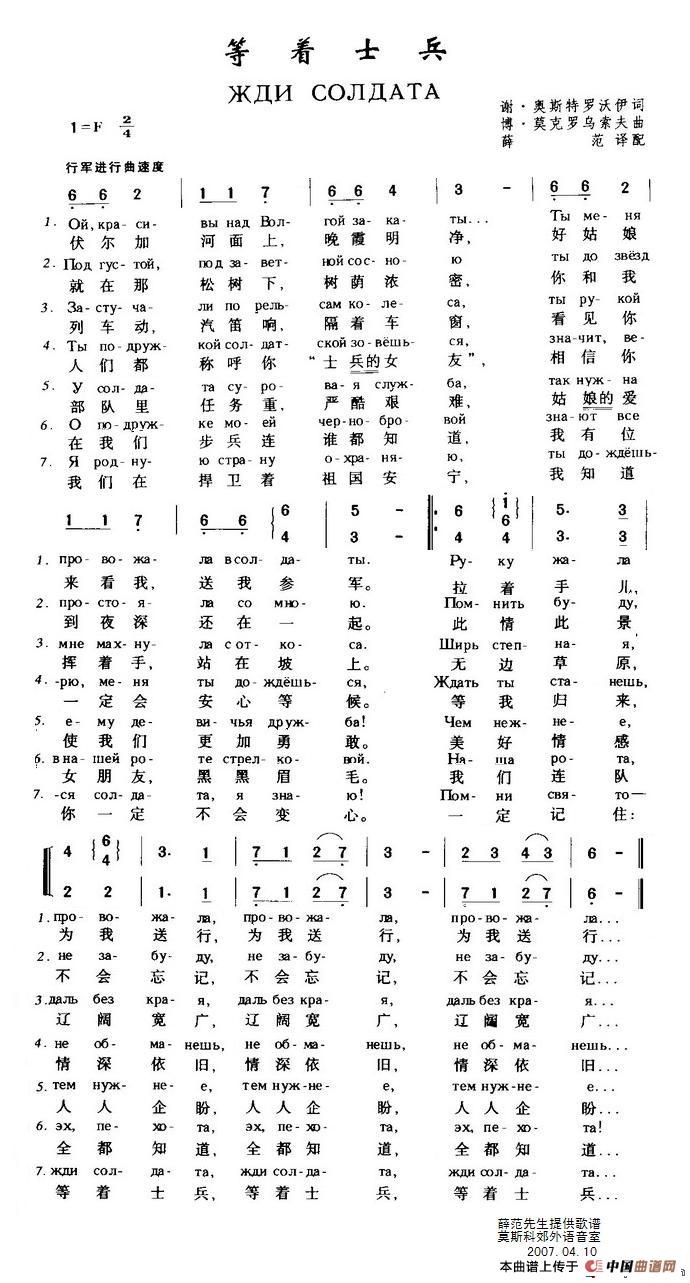 等着士兵
ЖДИ СОЛДАТА
谢·奥斯特罗沃伊词
1=F 2/4
博·莫克罗乌索夫曲
薛 范 译配
行军进行曲速度
6 6 2 | 1 1 7 | 6 6 4 | 3 - | 6 6 2
1. Ой, кра- си- вы над Вол- гой за- ка- ты... Ты ме- ня
伏尔加 河面上, 晚霞明净, 好姑娘
2. Под гус- той, под за- вет- ной сос- но- ю ты до звёзд
就在那 松树下, 树荫浓密, 你和我
3. За- сту- ча- ли по рель- сам ко- ле- са, ты ру- кой
列车动, 汽笛响, 隔着车窗, 看见你
4. Ты по- друж- кой сол- дат- ской зо- вёшь- ся, зна- чит, ве-
人们都 称呼你 “士兵的女友”, 相信你
5. У сол- да- та су- ро- ва- я служ- ба, так нуж- на
部队里 任务重, 严酷艰难, 姑娘的爱
6. О по- друж- ке мо- ей чер- но- бро- вой зна- ют все
在我们 步兵连 谁都知道, 我有位
7. Я род- ну- ю стра- ну о- хра- ня- ю, ты до- ждёшь-
我们在 捍卫着 祖国安宁, 我知道
1 1 7 | 6 6 6 | 5 - | 6 1 6 | 5. 3
4 3 - 4 4 3. 3
1. про- во- жа- ла в сол- да- ты. Ру- ку жа- ла
来看我, 送我参军。 拉着手儿,
2. про- сто- я- ла со мно- ю. Пом- нить бу- ду,
到夜深 还在一起。 此情此景
3. мне мах- ну- ла с от- ко- са. Ширь степ- на- я,
挥着手, 站在坡上。 无边草原,
4. -рю, ме- ня ты до- ждёшь- ся, Ждать ты ста- нешь,
一定会 安心等候。 等我归来,
5. е- му де- ви- чья друж- ба! Чем неж- не- е,
使我们 更加勇敢。 美好情感
6. в на- шей ро- те стрел- ко- вой. На- ша ро- та,
女朋友, 黑黑眉毛。 我们连队
7. -ся сол- да- та, я зна- ю! Пом- ни свя- то—
你一定 不会变心。 一定记住:
4 6 4 | 3. 1 | 7 1 2 7 | 3 - | 2 3 4 3 | 6 -
2 2 | 1. 1 | 7 1 2 7 | 3 - | 7 1 2 7 | 6 -
1. про- во- жа- ла, про- во- жа- ла, про- во- жа- ла...
为我送行, 为我送行, 为我送行...
2. не за- бу- ду, не за- бу- ду, не за- бу- ду...
不会忘记, 不会忘记, 不会忘记...
3. даль без кра- я, даль без кра- я, даль без кра- я...
辽阔宽广, 辽阔宽广, 辽阔宽广...
4. не об- ма- нешь, не об- ма- нешь, не об- ма- нешь...
情深依旧, 情深依旧, 情深依旧...
5. тем нуж- не- е, тем нуж- не- е, тем нуж- не- е...
人人企盼, 人人企盼, 人人企盼...
6. эх, пе- хо- та, эх, пе- хо- та, эх, пе- хо- та!
全都知道, 全都知道, 全都知道...
7. жди сол- да- та, жди сол- да- та, жди сол- да- та...
等着士兵, 等着士兵, 等着士兵...
薛范先生提供歌谱
莫斯科郊外语音室
2007.04.10
本曲谱上传于 中国曲谱网